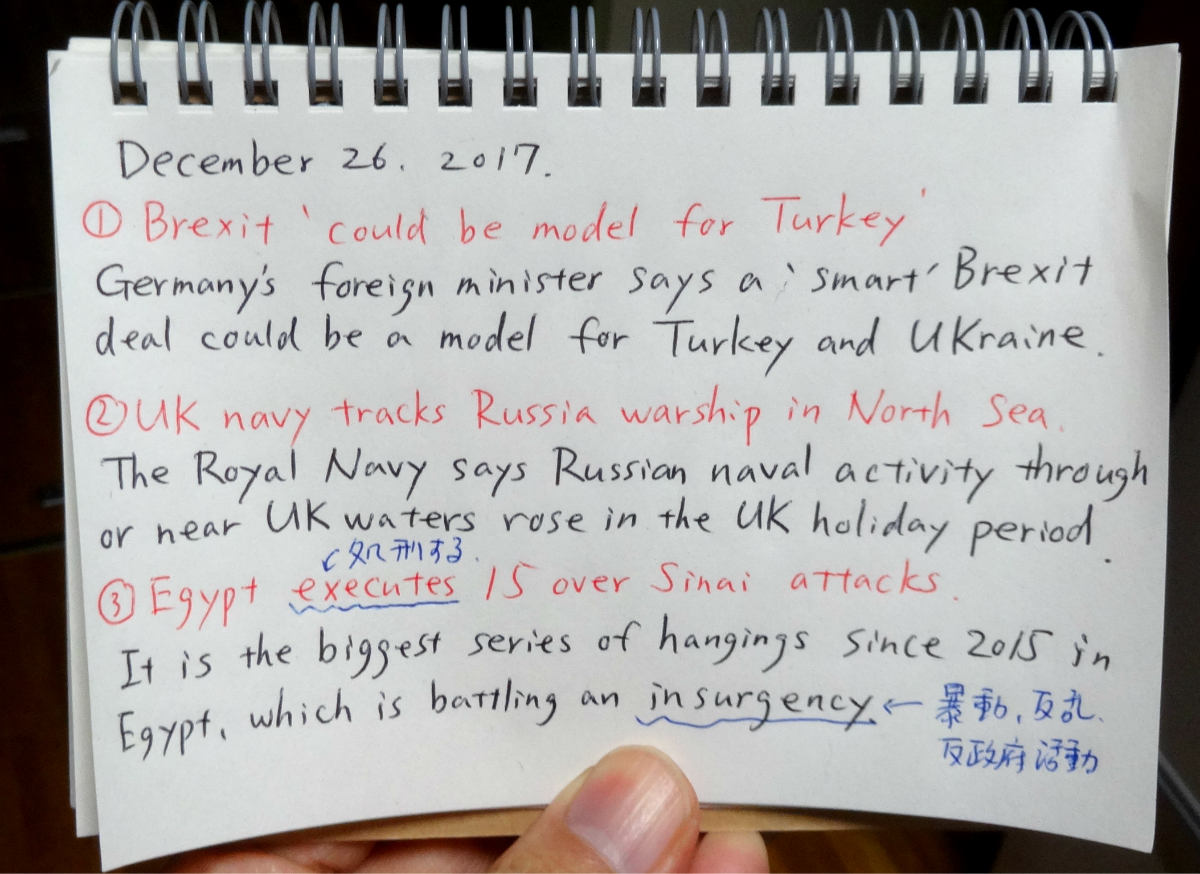 December 26. 2017.
① Brexit 'could be model for Turkey'
Germany's foreign minister says a 'smart' Brexit
deal could be a model for Turkey and UKraine.
② UK navy tracks Russia warship in North Sea.
The Royal Navy says Russian naval activity through
or near UK waters rose in the UK holiday period.
↙処刑する.
③ Egypt executes 15 over Sinai attacks.
It is the biggest series of hangings since 2015 in
Egypt, which is battling an insurgency ← 暴動,反乱.
反政府活動